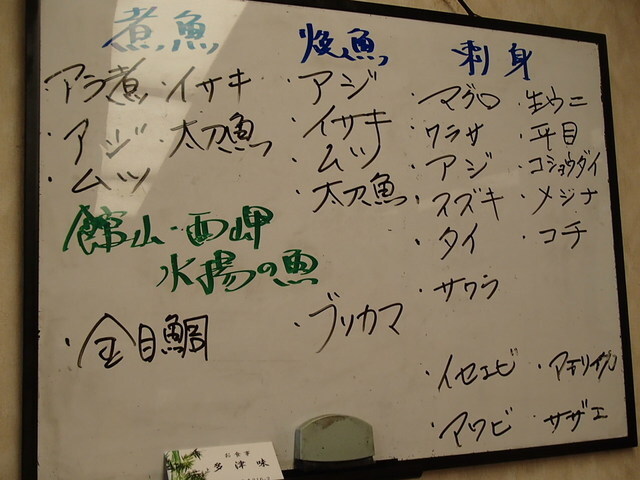 煮魚
・アラ煮 ・イサキ
・アジ ・太刀魚
・ムツ
館山・西岬
水揚の魚
・金目鯛
焼魚
・アジ
・イサキ
・ムツ
・太刀魚
・ブリカマ
刺身
・マグロ ・生ウニ
・ワラサ ・平目
・アジ ・コショウダイ
・スズキ ・メジナ
・タイ ・コチ
・サワラ
・イセエビ ・アオリイカ
・アワビ ・サザエ
お食事
多津味